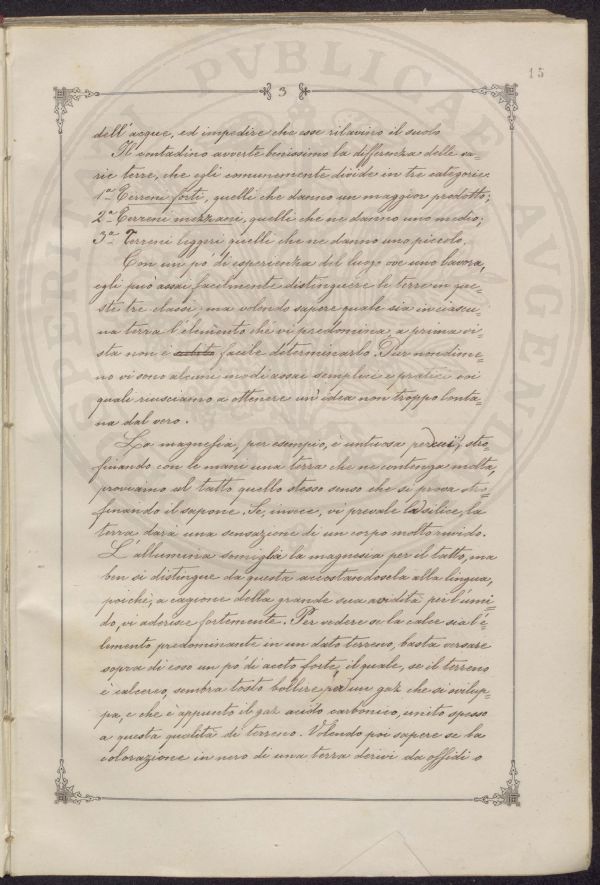 15
3
dell'acque, ed impedire che esse rilavino il suolo
Il contadino avverte benissimo la differenza delle va=
rie terre, che egli comunemente divide in tre categorie:
1ª Terreni forti, quelli che danno un maggior prodotto;
2ª Terreni mezzani, quelli che ne danno uno medio;
3ª Terreni leggeri quelli che ne danno uno piccolo.
Con un pò di esperienza del luogo ove uno lavora,
egli può assai facilmente distinguere le terre in que=
ste tre classi; ma volendo sapere quale sia in ciascu=
na terra l'elemento che vi predomina, a prima vi=
sta non è facile determinarlo. Pur nondime=
no vi sono alcuni modi assai semplici e pratici coi
quali riusciamo a ottenere un'idea non troppo lonta=
na dal vero.
La magnesia, per esempio, è untuosa percui, stro=
finando con le mani una terra che ne contenga molta,
proviamo al tatto quello stesso senso che si prova stro=
finando il sapone. Se, invece, vi prevale la silice, la
terra darà una sensazione di un corpo molto ruvido.
L'allumina somiglia la magnesia per il tatto, ma
ben si distingue da questa accostandosela alla lingua,
poichè, a cagione della grande sua avidità per l'umi=
do, vi aderisce fortemente. Per vedere se la calce sia l'e=
lemento predominante in un dato terreno, basta versare
sopra di esso un pò di aceto forte, il quale, se il terreno
è calcareo, sembra tosto bollire per un gaz che si svilup=
pa, e che è appunto il gaz acido carbonico, unito spesso
a questa qualità di terreno. Volendo poi sapere se la
colorazione in nero di una terra derivi da ossidi o
PVBLICAE
AVGENDAE